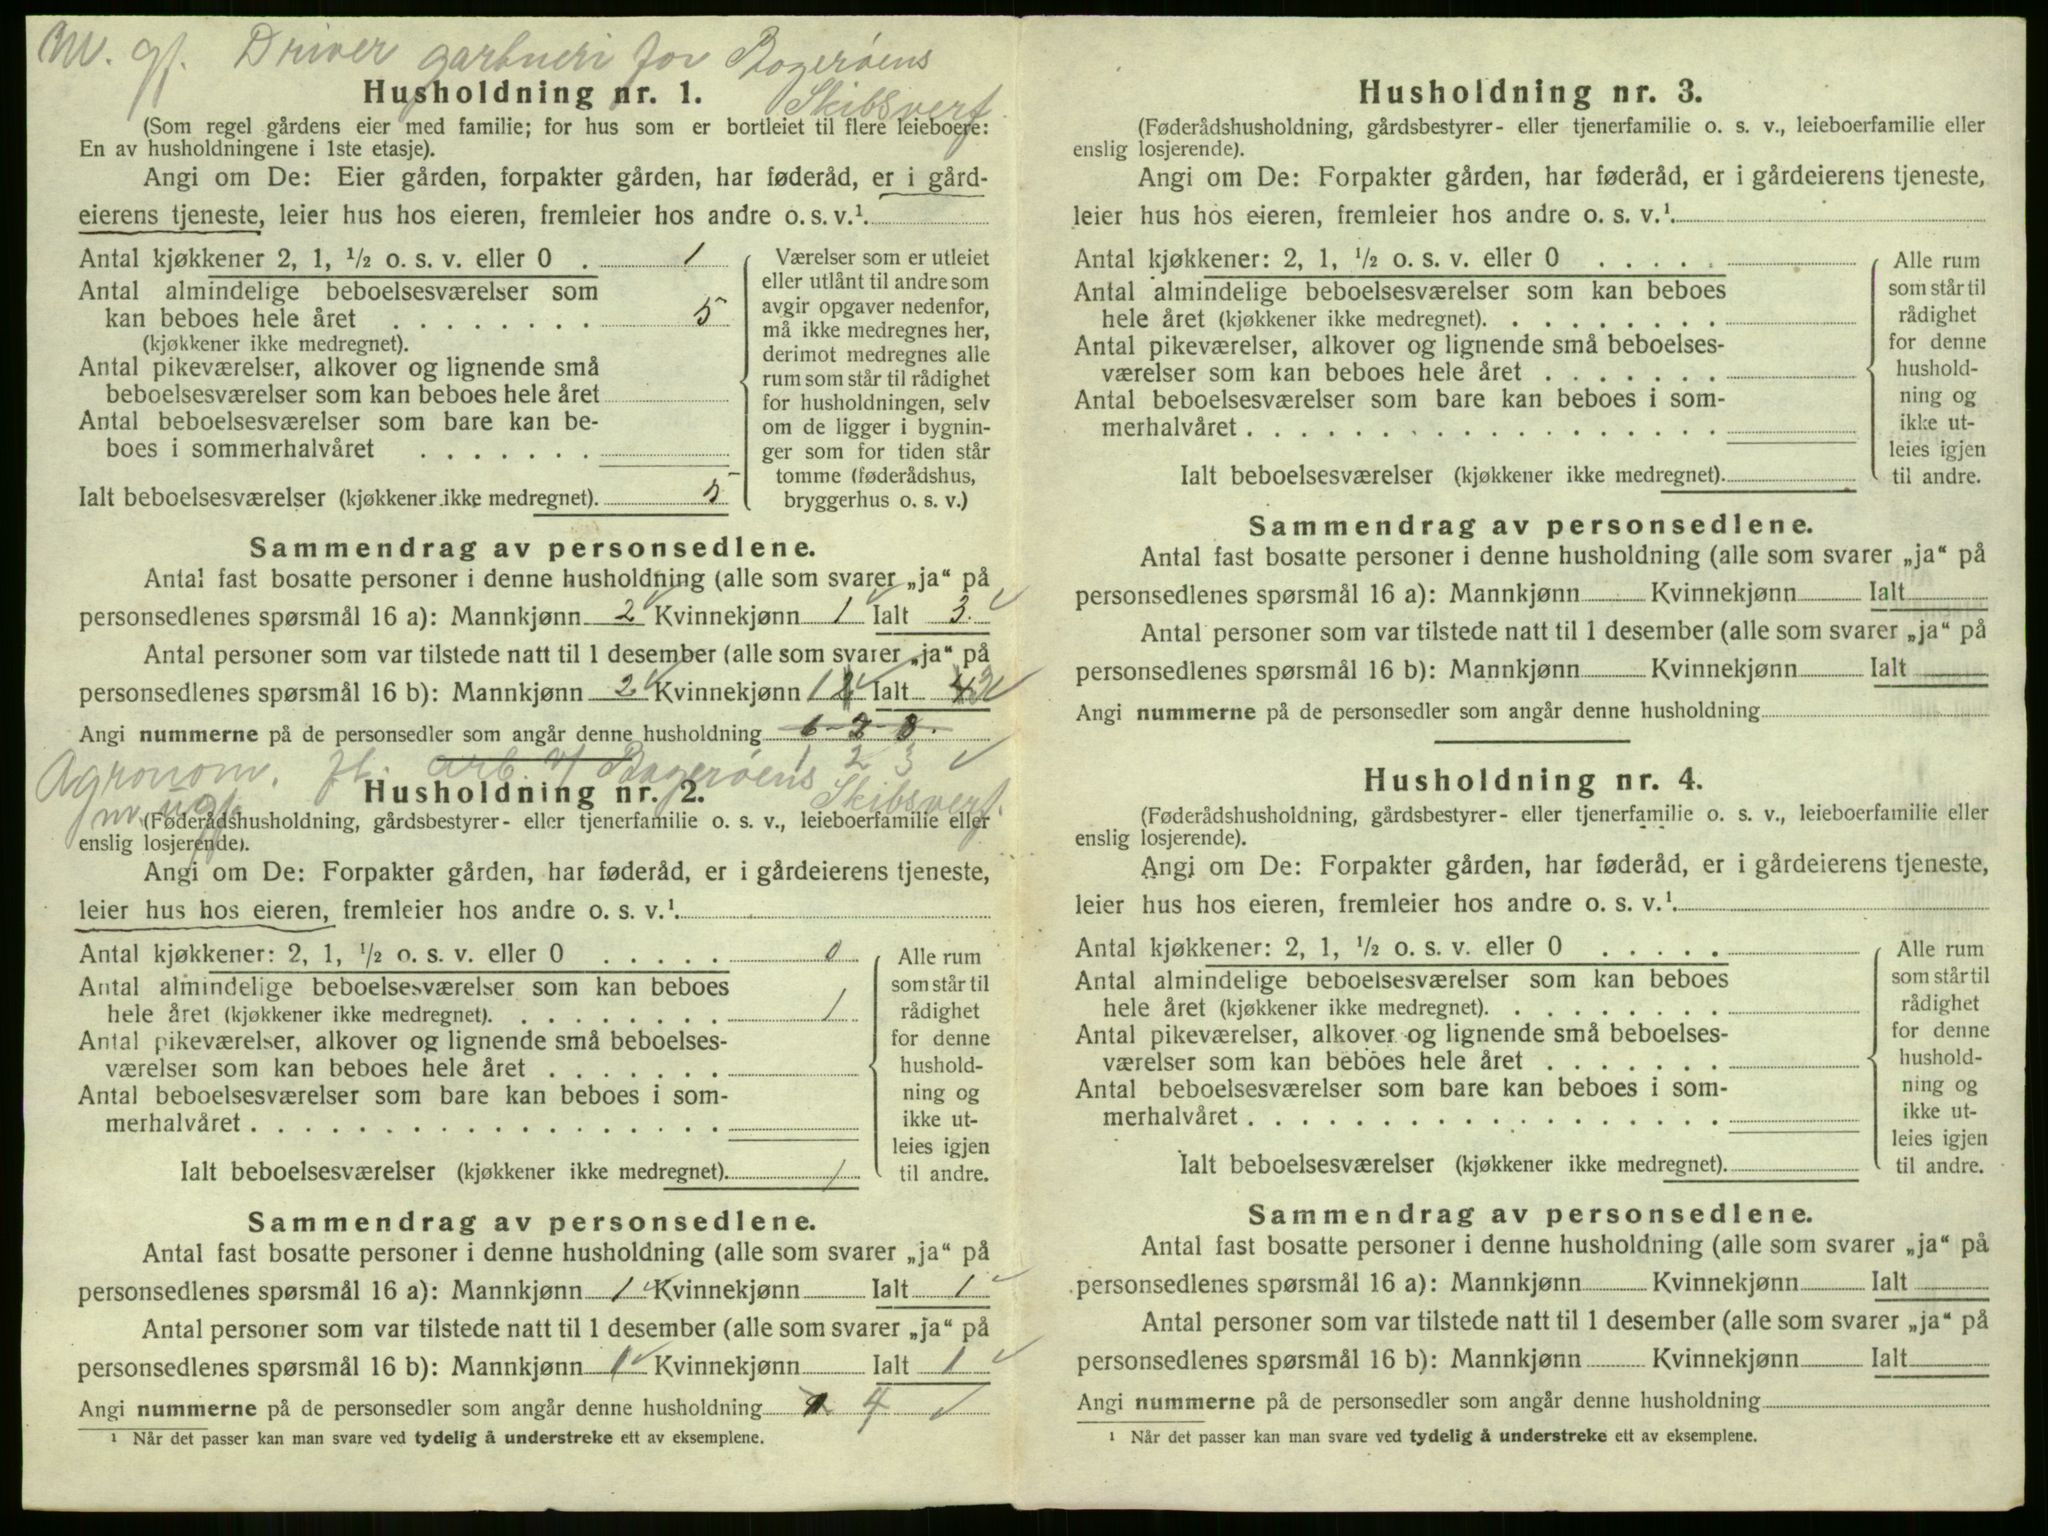 M. gf. Driver gartneri for Bagerøens
Skibsverf.
Husholdning nr. 1.
(Som regel gårdens eier med familie; for hus som er bortleiet til flere leieboere:
En av husholdningene i 1ste etasje).
Angi om De: Eier gården, forpakter gården, har føderåd, er i gård-
eierens tjeneste, leier hus hos eieren, fremleier hos andre o. s. v.¹.
Antal kjøkkener 2, 1, ½ o. s. v. eller 0 . 1
Antal almindelige beboelsesværelser som
kan beboes hele året . . . . . . . . 5
(kjøkkener ikke medregnet).
Antal pikeværelser, alkover og lignende små
beboelsesværelser som kan beboes hele året
Antal beboelsesværelser som bare kan be-
boes i sommerhalvåret . . . . . . .
Ialt beboelsesværelser (kjøkkener ikke medregnet). 5
Værelser som er utleiet
eller utlånt til andre som
avgir opgaver nedenfor,
må ikke medregnes her,
derimot medregnes alle
rum som står til rådighet
for husholdningen, selv
om de ligger i bygnin-
ger som for tiden står
tomme (føderådshus,
bryggerhus o. s. v.)
Sammendrag av personsedlene.
Antal fast bosatte personer i denne husholdning (alle som svarer „ja“ på
personsedlenes spørsmål 16 a): Mannkjønn 2 Kvinnekjønn 1 Ialt 3.
Antal personer som var tilstede natt til 1 desember (alle som svarer „ja“ på
personsedlenes spørsmål 16 b): Mannkjønn 2 Kvinnekjønn 1 Ialt 3
Angi nummerne på de personsedler som angår denne husholdning
1 2 3
Agronom. fl. arb. v/ Bagerøens
Skibsverf.
m. ugf.
Husholdning nr. 2.
(Føderådshusholdning, gårdsbestyrer- eller tjenerfamilie o. s. v., leieboerfamilie eller
enslig losjerende).
Angi om De: Forpakter gården, har føderåd, er i gårdeierens tjeneste,
leier hus hos eieren, fremleier hos andre o. s. v.¹.
Antal kjøkkener: 2, 1, ½ o. s. v. eller 0 . . . . . 0
Antal almindelige beboelsesværelser som kan beboes
hele året (kjøkkener ikke medregnet). . . . . . . . . 1
Antal pikeværelser, alkover og lignende små beboelses-
værelser som kan beboes hele året . . . . . . .
Antal beboelsesværelser som bare kan beboes i som-
merhalvåret . . . . . . . . . . . . . . . . . .
Ialt beboelsesværelser (kjøkkener ikke medregnet). 1
Alle rum
som står til
rådighet
for denne
hushold-
ning og
ikke ut-
leies igjen
til andre.
Sammendrag av personsedlene.
Antal fast bosatte personer i denne husholdning (alle som svarer „ja“ på
personsedlenes spørsmål 16 a): Mannkjønn 1 Kvinnekjønn Ialt 1
Antal personer som var tilstede natt til 1 desember (alle som svarer „ja“ på
personsedlenes spørsmål 16 b): Mannkjønn 1 Kvinnekjønn Ialt 1
Angi nummerne på de personsedler som angår denne husholdning 4
¹ Når det passer kan man svare ved tydelig å understreke ett av eksemplene.
Husholdning nr. 3.
(Føderådshusholdning, gårdsbestyrer- eller tjenerfamilie o. s. v., leieboerfamilie eller
enslig losjerende).
Angi om De: Forpakter gården, har føderåd, er i gårdeierens tjeneste,
leier hus hos eieren, fremleier hos andre o. s. v.¹.
Antal kjøkkener: 2, 1, ½ o. s. v. eller 0 . . . . .
Antal almindelige beboelsesværelser som kan beboes
hele året (kjøkkener ikke medregnet). . . . . . . . .
Antal pikeværelser, alkover og lignende små beboelses-
værelser som kan beboes hele året . . . . . . .
Antal beboelsesværelser som bare kan beboes i som-
merhalvåret . . . . . . . . . . . . . . . . . .
Ialt beboelsesværelser (kjøkkener ikke medregnet).
Alle rum
som står til
rådighet
for denne
hushold-
ning og
ikke ut-
leies igjen
til andre.
Sammendrag av personsedlene.
Antal fast bosatte personer i denne husholdning (alle som svarer „ja“ på
personsedlenes spørsmål 16 a): Mannkjønn Kvinnekjønn Ialt
Antal personer som var tilstede natt til 1 desember (alle som svarer „ja“ på
personsedlenes spørsmål 16 b): Mannkjønn Kvinnekjønn Ialt
Angi nummerne på de personsedler som angår denne husholdning
Husholdning nr. 4.
(Føderådshusholdning, gårdsbestyrer- eller tjenerfamilie o. s. v., leieboerfamilie eller
enslig losjerende).
Angi om De: Forpakter gården, har føderåd, er i gårdeierens tjeneste,
leier hus hos eieren, fremleier hos andre o. s. v.¹.
Antal kjøkkener: 2, 1, ½ o. s. v. eller 0 . . . . .
Antal almindelige beboelsesværelser som kan beboes
hele året (kjøkkener ikke medregnet). . . . . . . . .
Antal pikeværelser, alkover og lignende små beboelses-
værelser som kan beboes hele året . . . . . . .
Antal beboelsesværelser som bare kan beboes i som-
merhalvåret . . . . . . . . . . . . . . . . . .
Ialt beboelsesværelser (kjøkkener ikke medregnet).
Alle rum
som står til
rådighet
for denne
hushold-
ning og
ikke ut-
leies igjen
til andre.
Sammendrag av personsedlene.
Antal fast bosatte personer i denne husholdning (alle som svarer „ja“ på
personsedlenes spørsmål 16 a): Mannkjønn Kvinnekjønn Ialt
Antal personer som var tilstede natt til 1 desember (alle som svarer „ja“ på
personsedlenes spørsmål 16 b): Mannkjønn Kvinnekjønn Ialt
Angi nummerne på de personsedler som angår denne husholdning
¹ Når det passer kan man svare ved tydelig å understreke ett av eksemplene.